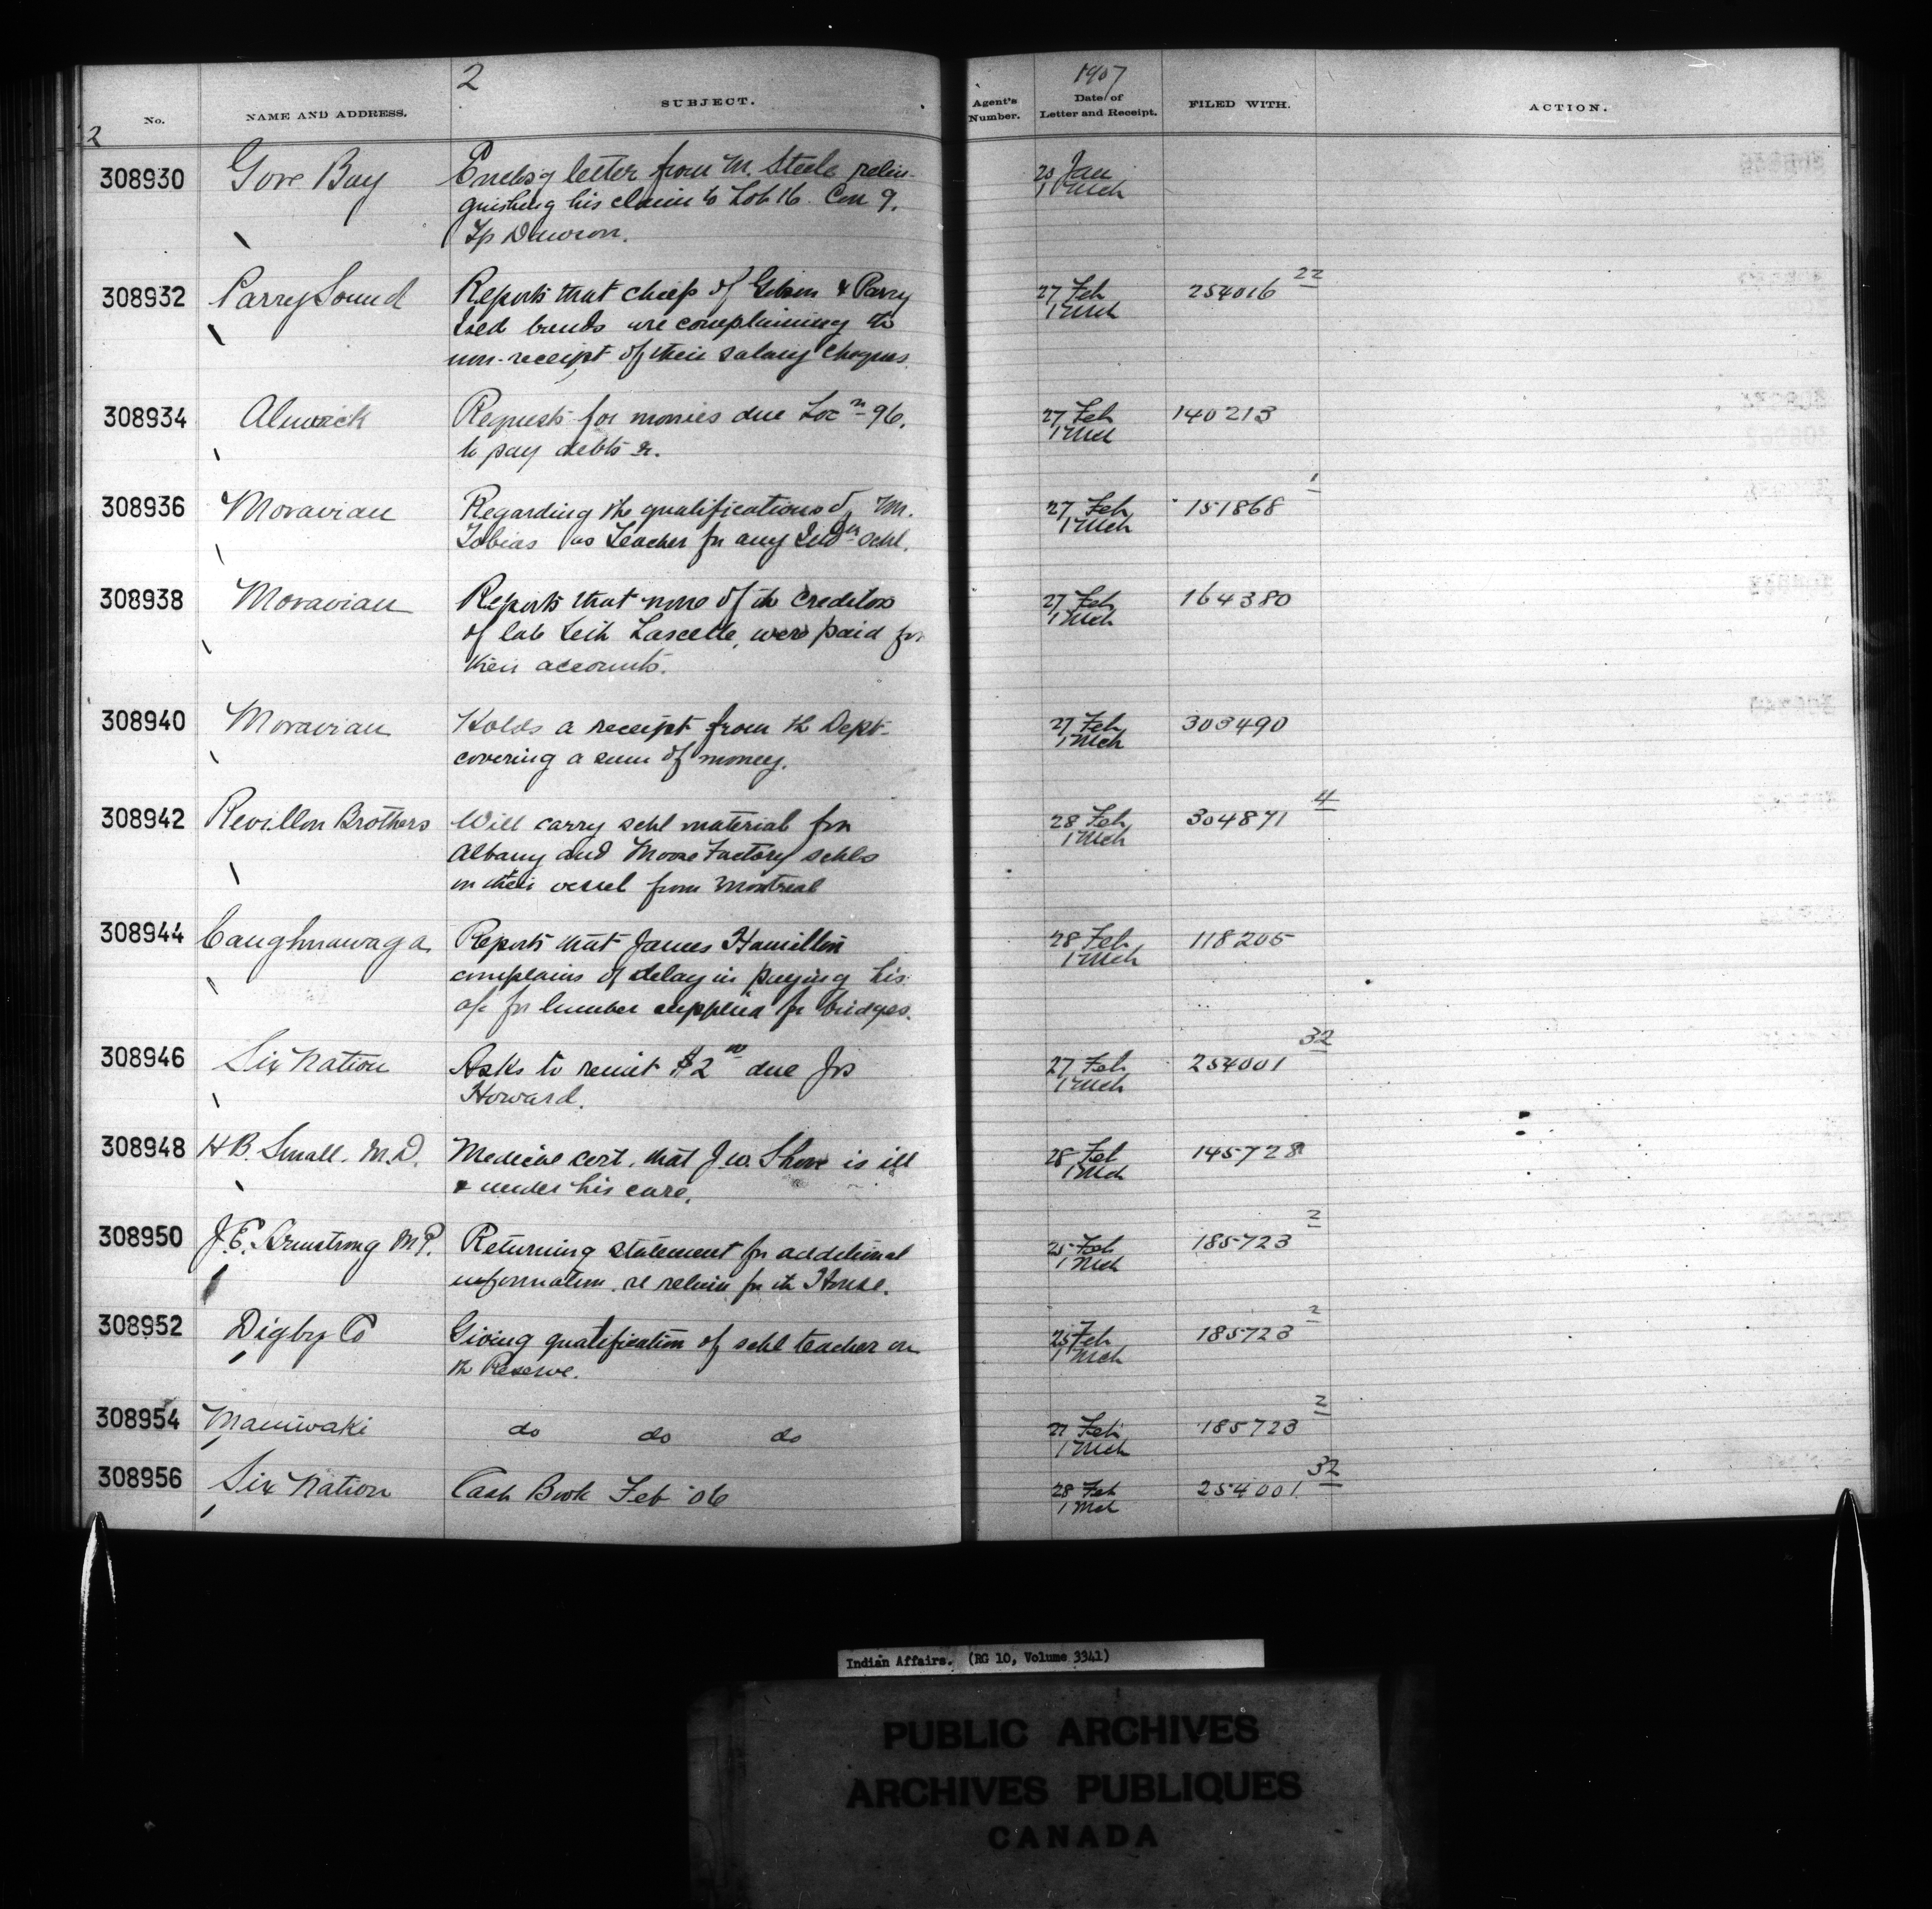 2
1907
No.
NAME AND ADDRESS.
SUBJECT.
Agent's Number.
Date of Letter and Receipt.
FILED WITH.
ACTION.
2
308930 Gore Bay Enclos'g letter from M. Steele relin- 20 Jan
quishing his claim to Lot 16. Con 9. 1 Mch
Tp Dawson.
308932 Parry Sound Reports that chiefs of Gibson & Parry 27 Feb 254016 22
bands are complaining 1 Mch
non-receipt of their salary cheques.
308934 Alnwick Requests for monies due Loc n 96. 27 Feb 140213
to pay debts &. 1 Mch
308936 Moravian Regarding the qualifications of M. 27 Feb 151868 1
Tobias as Teacher for any Indn schl. 1 Mch
308938 Moravian Reports that none of the creditors 27 Feb 164380
of late Lascelle, were paid for 1 Mch
their accounts.
308940 Moravian Holds a receipt from th Dept 27 Feb 303490
covering a sum of money. 1 Mch
308942 Revillon Brothers Will carry schl material for 28 Feb 304871 4
Albany and Moose Factory schls 1 Mch
on their vessel from Montreal
308944 Caughnawaga Reports that James Hamilton 28 Feb 118205
complains of delay in paying his 1 Mch
a/c for lumber supplied for bridges.
308946 Six Nation Asks to remit $2 00 due Jos 27 Feb 254001 32
Howard. 1 Mch
308948 H B. Small. M.D. Medical cert. that J.W. Shore is ill 28 Feb 145728
& under his care. 1 Mch
308950 J.E. Armstrong M.P. Returning statement for additional 25 Feb 185723 2
information. re return for the House. 1 Mch
308952 Digby Co Giving qualification of schl teacher on 25 Feb 185723 2
th Reserve. 1 Mch
308954 Maniwaki do do do 27 Feb 185723 2
1 Mch
308956 Six Nation Cash Book Feb '06 28 Feb 254001 32
1 Mch
Indian Affairs. (RG 10, Volume 3341)
PUBLIC ARCHIVES
ARCHIVES PUBLIQUES
CANADA